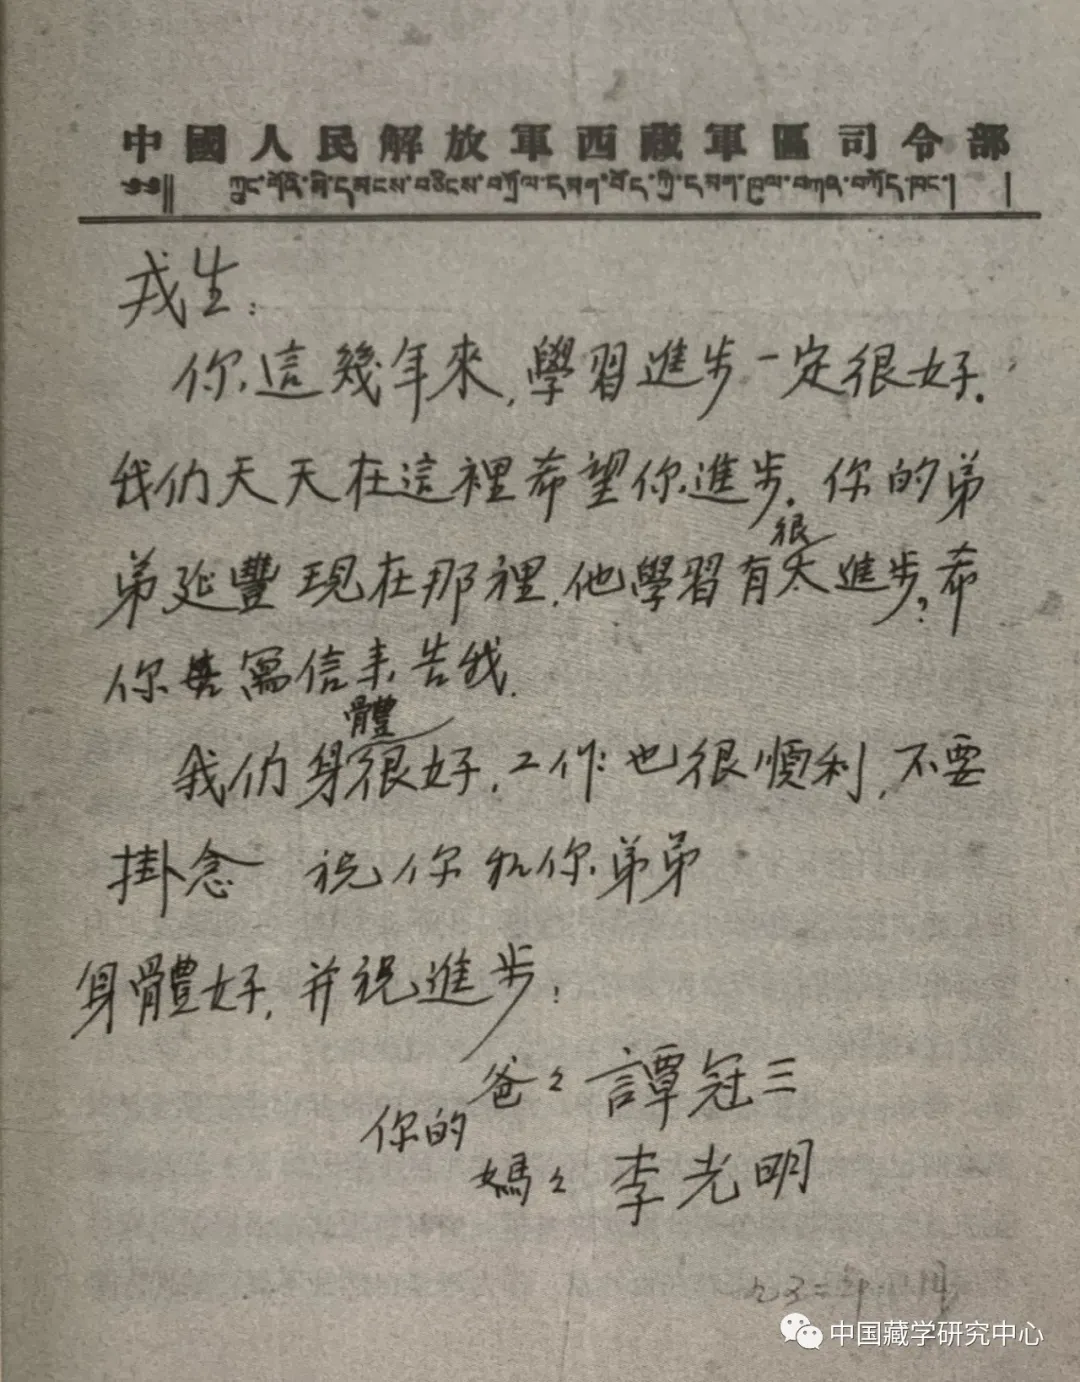 中國人民解放軍西藏軍區司令部
༄༅།། ཀྲུང་གོའི་མི་དམངས་བཅིངས་བཀྲོལ་དམག་བོད་ཀྱི་དམག་ཁུལ་བཀའ་བཀོད་ཁང་། །
戎生：
你這幾年來,學習進步一定很好.
我们天天在這裡希望你進步.你的弟
弟延豐現在那裡.他學習有很大進步?希
你寫信来告我.
我们身體很好.工作也很順利,不要
掛念 祝你和你弟弟
身體好,并祝進步!
你的 爸々 譚冠三
媽々 李光明
中国藏学研究中心